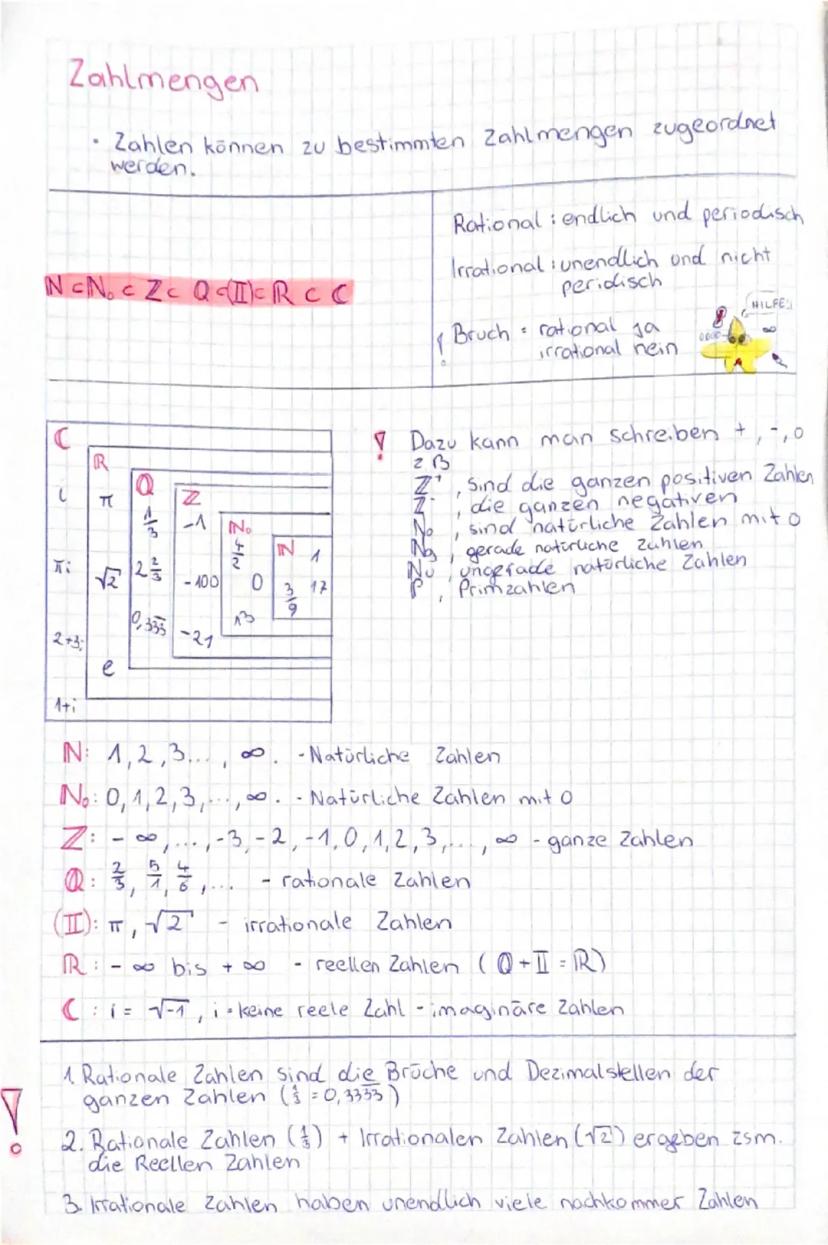 Zahlmengen
· Zahlen können zu bestimmten Zahlmengen zugeordnet
werden.
Rational : endlich und periodisch
Irrational : unendlich und nicht
peridisch
ℕ ⊂ ℕ₀ ⊂ ℤ ⊂ ℚ ⊂ (𝕀) ⊂ ℝ ⊂ ℂ
! Bruch = rational ja
irrational nein
HILFE!
∞
ℂ
ℝ
ℚ
ℤ
ℕ₀
ℕ
i π 1/3 -1 4/2 1
πi √2 2 2/3 -100 0 3/9 17
2+3i 0,333 -21
e
1+i
! Dazu kann man schreiben +, -, 0
z B
ℤ⁺, sind die ganzen positiven Zahlen
ℤ⁻, die ganzen negativen
ℕ₀, sind natürliche Zahlen mit 0
ℕg, gerade natürliche Zahlen
ℕu, ungerade natürliche Zahlen
ℙ, Primzahlen
ℕ: 1, 2, 3..., ∞. - Natürliche Zahlen
ℕ₀: 0, 1, 2, 3, ..., ∞. - Natürliche Zahlen mit 0
ℤ: - ∞, ..., -3, -2, -1, 0, 1, 2, 3, ..., ∞ - ganze Zahlen
ℚ: 2/3, 5/1, 4/6, ... - rationale Zahlen
(𝕀): π, √2 - irrationale Zahlen
ℝ: - ∞ bis + ∞ - reellen Zahlen (ℚ + 𝕀 = ℝ)
ℂ: i = √-1, i = keine reele Zahl - imaginäre Zahlen
! 1. Rationale Zahlen sind die Brüche und Dezimalstellen der
ganzen Zahlen (1/3 = 0,3333)
2. Rationale Zahlen (1/3) + Irrationalen Zahlen (√2) ergeben zsm.
die Reellen Zahlen
3. Irrationale Zahlen haben unendlich viele nachkommer Zahlen